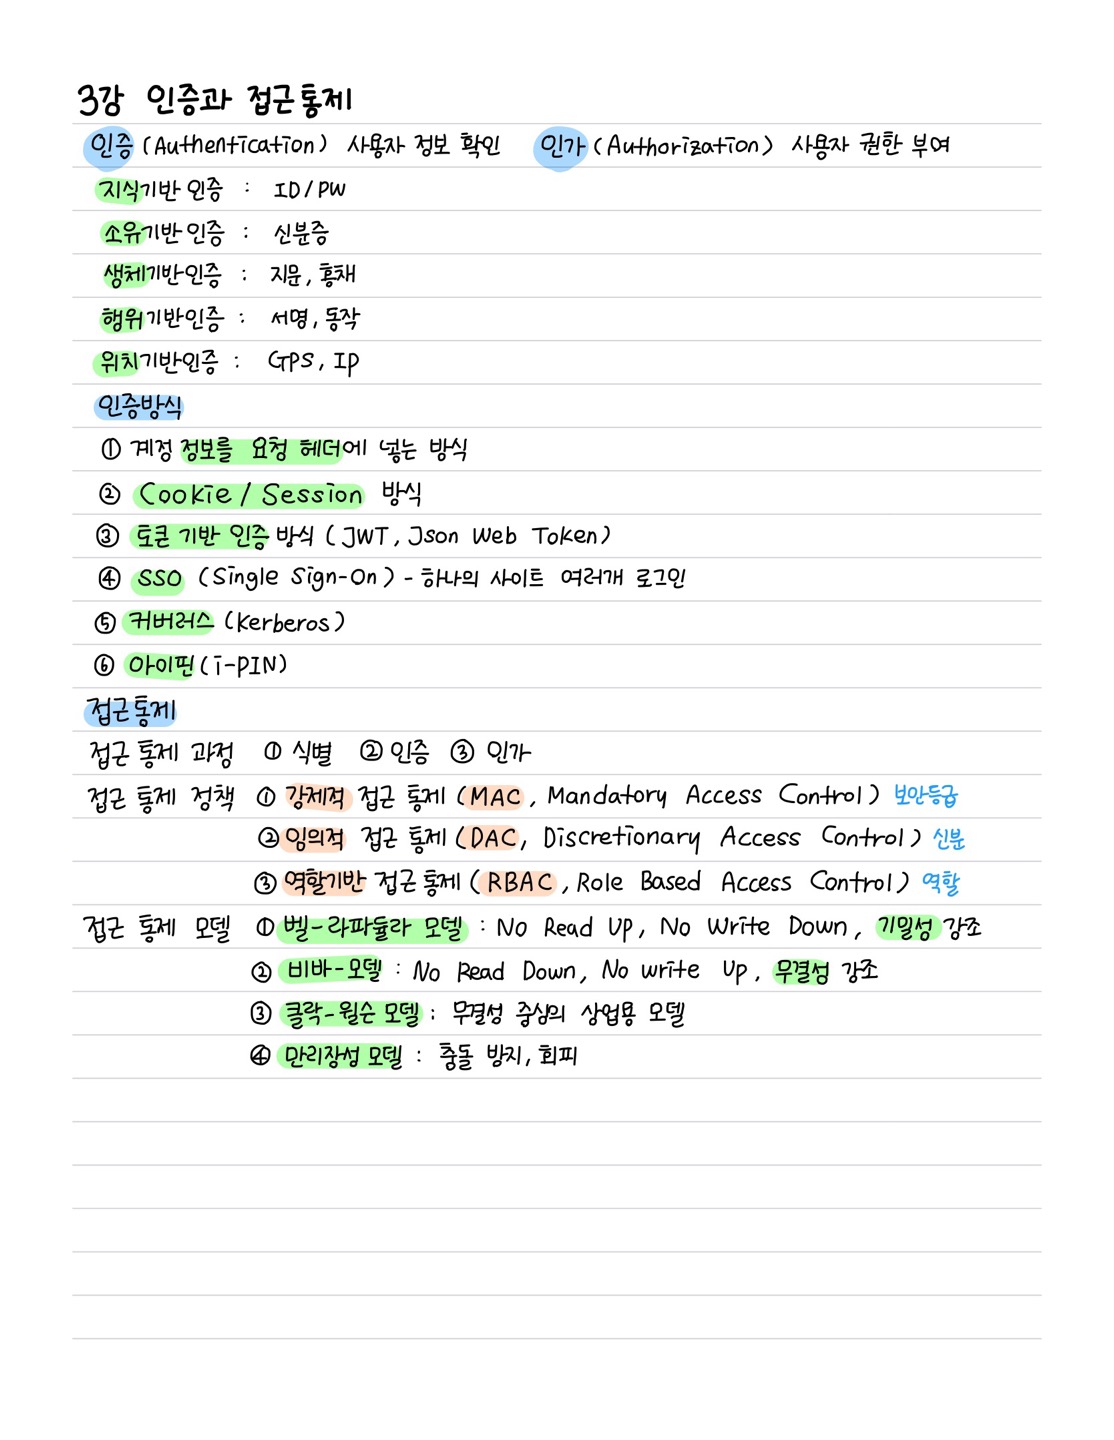 3강 인증과 접근통제
인증 (Authentication) 사용자 정보 확인 인가 (Authorization) 사용자 권한 부여
지식기반 인증 : ID/PW
소유기반 인증 : 신분증
생체기반인증 : 지문, 홍채
행위기반인증 : 서명, 동작
위치기반인증 : GPS, IP
인증방식
① 계정 정보를 요청 헤더에 넣는 방식
② Cookie / Session 방식
③ 토큰 기반 인증 방식 (JWT, Json Web Token)
④ SSO (Single Sign-On) - 하나의 사이트 여러개 로그인
⑤ 커버러스 (Kerberos)
⑥ 아이핀 (i-PIN)
접근통제
접근 통제 과정 ① 식별 ② 인증 ③ 인가
접근 통제 정책 ① 강제적 접근 통제 (MAC, Mandatory Access Control) 보안등급
② 임의적 접근 통제 (DAC, Discretionary Access Control) 신분
③ 역할기반 접근 통제 (RBAC, Role Based Access Control) 역할
접근 통제 모델 ① 벨-라파듈라 모델 : No Read Up, No Write Down, 기밀성 강조
② 비바-모델 : No Read Down, No write Up, 무결성 강조
③ 클락-윌슨 모델 : 무결성 중심의 상업용 모델
④ 만리장성 모델 : 충돌 방지, 회피